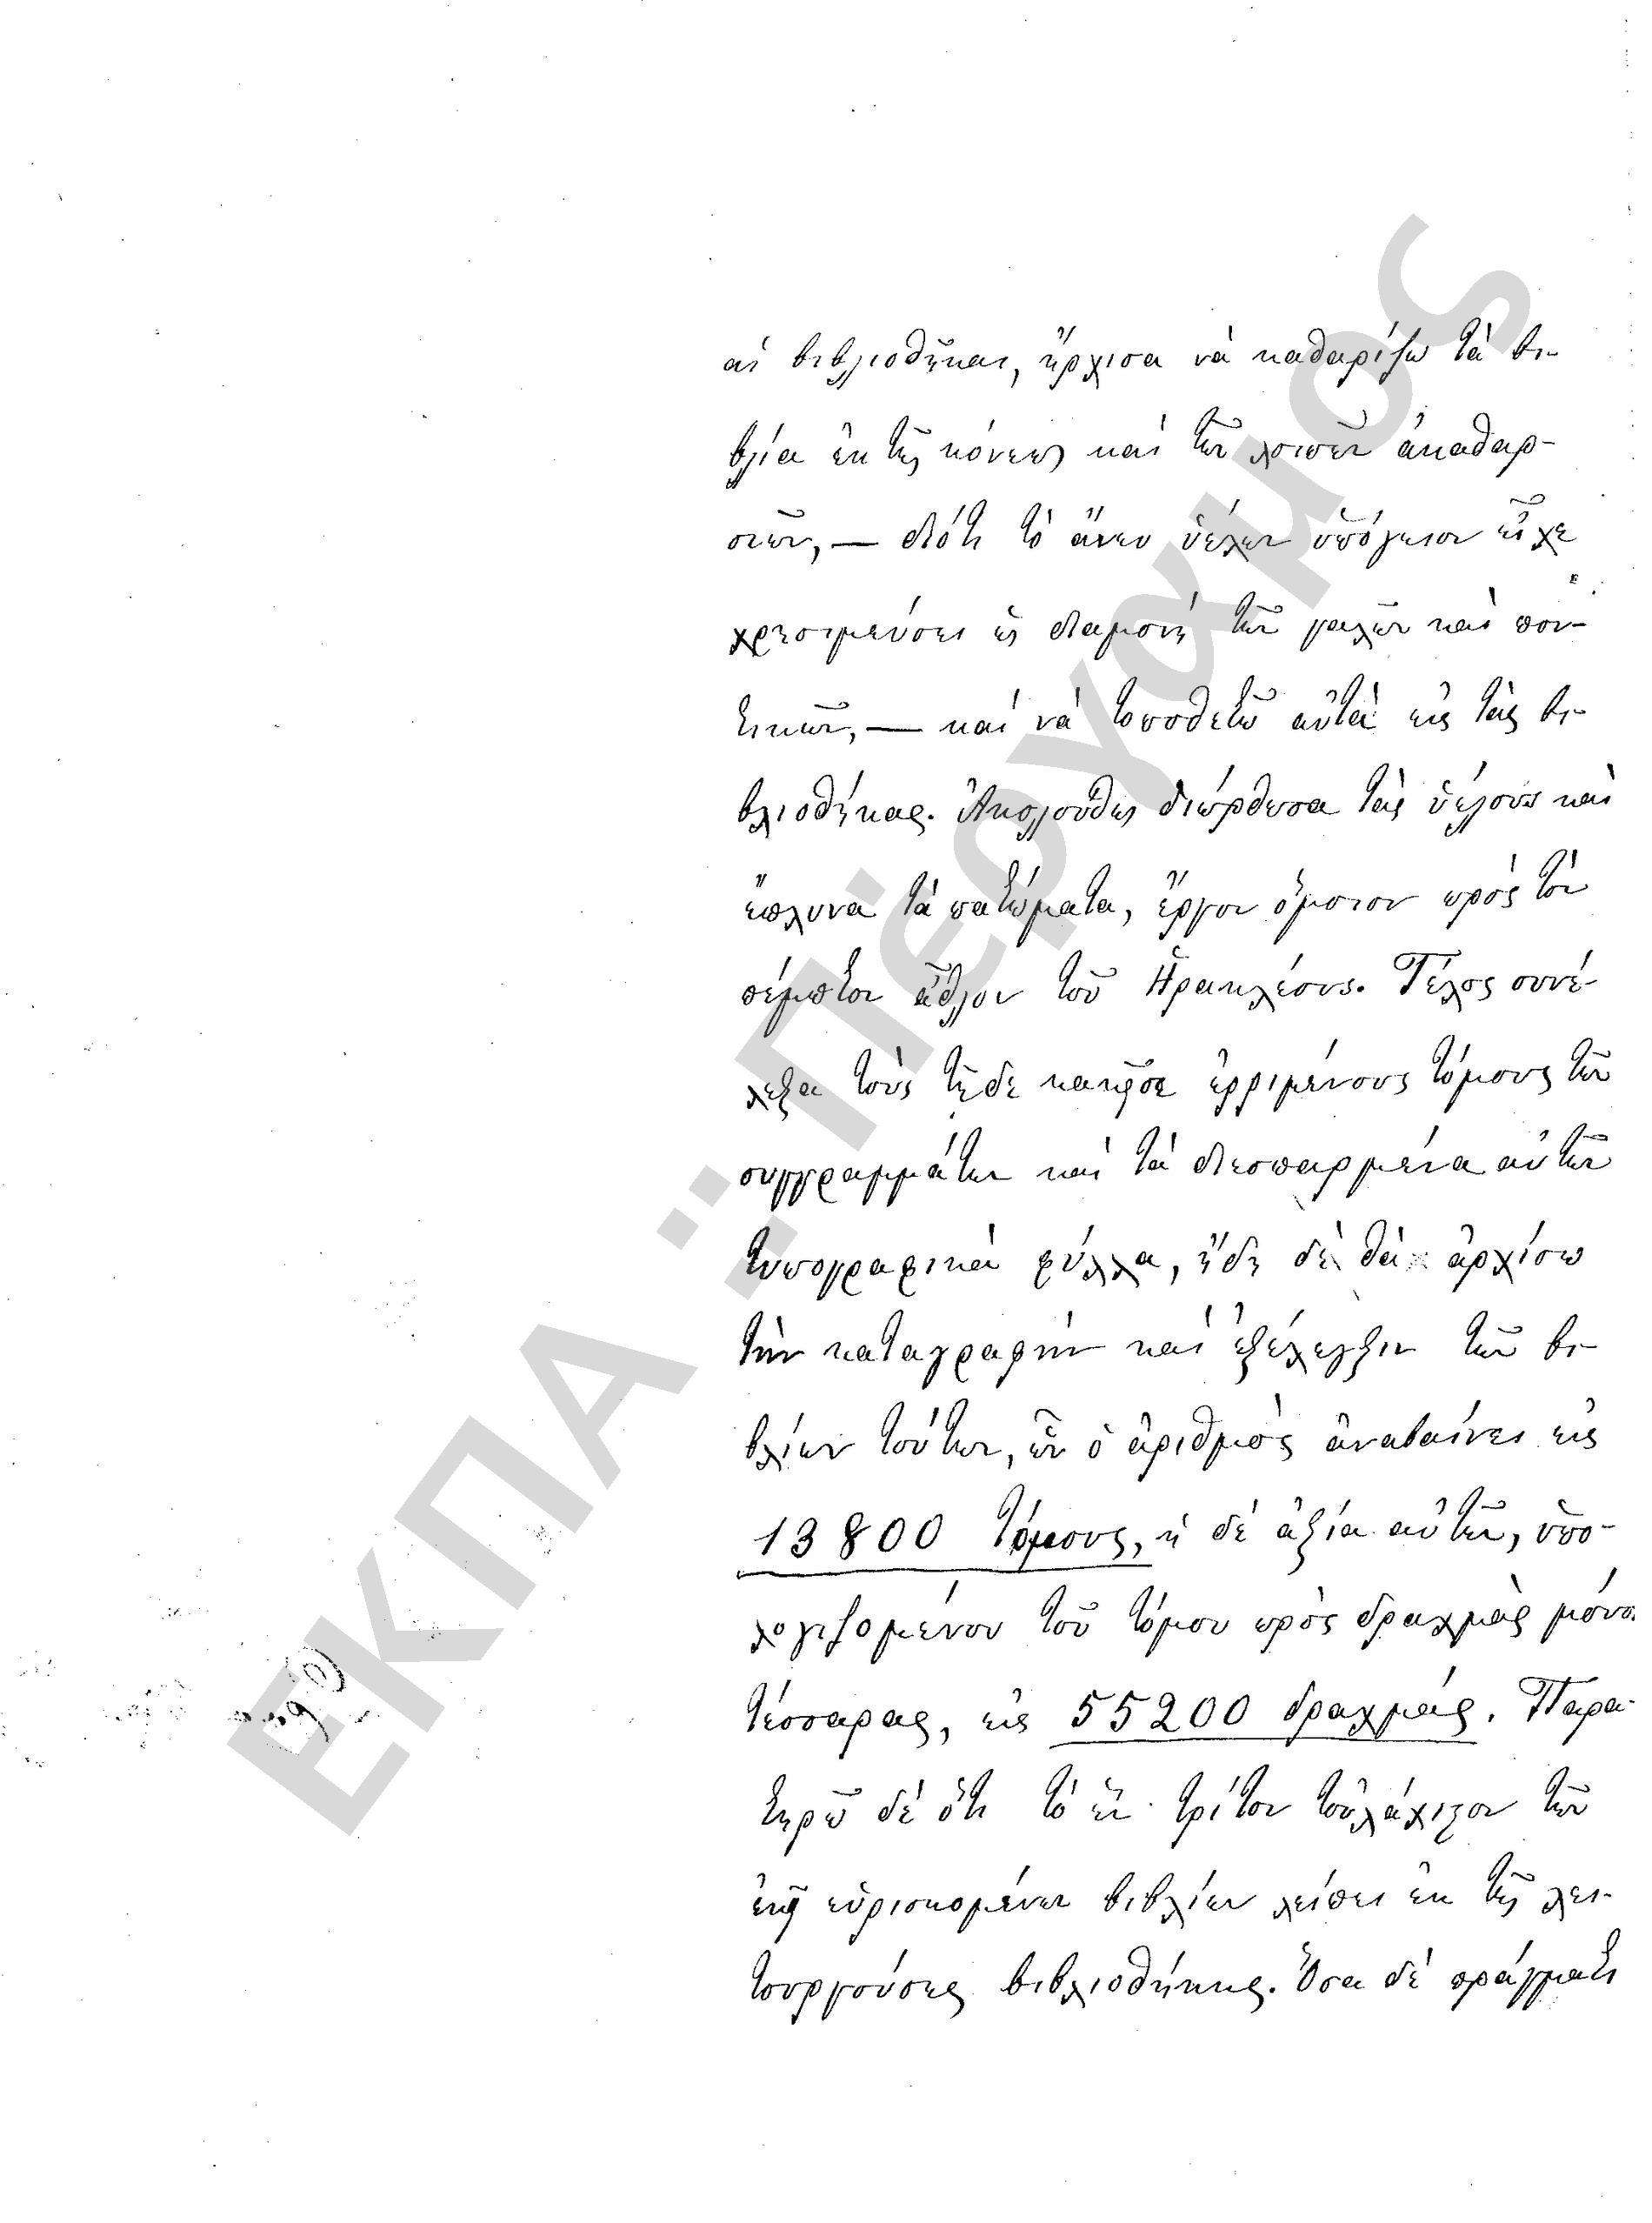 αἱ βιβλιοθῆκαι, ἤρχισα νὰ καθαρίζω τὰ βι-
βλία ἐκ τῆς κόνεως καὶ τῶν λοιπῶν ἀκαθαρ-
σιῶν, — διότι τὸ ἄνευ ὑέλων ὑπόγειον εἶχε
χρησιμεύσει εἰς διαμονὴν τῶν γαλῶν καὶ πον-
τικῶν, — καὶ νὰ τοποθετῶ αὐτὰ εἰς τὰς βι-
βλιοθήκας. Ἀκολούθως διώρθωσα τὰς ὑέλους καὶ
ἔπλυνα τὰ πατώματα, ἔργον ὅμοιον πρὸς τὸν
πέμπτον ἆθλον τοῦ Ἡρακλέους. Τέλος συνέ-
λεξα τοὺς τῇδε κακεῖσε ἐρριμένους τόμους τῶν
συγγραμμάτων καὶ τὰ διεσπαρμένα αὐτῶν
τυπογραφικὰ φύλλα, ἤδη δὲ θὰ ἀρχίσω
τὴν καταγραφὴν καὶ ἐξέλεγξιν τῶν βι-
βλίων τούτων, ὧν ὁ ἀριθμὸς ἀναβαίνει εἰς
13800 τόμους, ἡ δὲ ἀξία αὐτῶν, ὑπο-
λογιζομένου τοῦ τόμου πρὸς δραχμὰς μόνο
τέσσαρας, εἰς 55200 δραχμάς. Παρα-
τηρῶ δὲ ὅτι τὸ ἓν τρίτον τοὐλάχιστον τῶν
εὑρισκομένων βιβλίων λείπει ἐκ τῆς λει-
τουργούσης βιβλιοθήκης. Ὅσα δὲ πράγματι
ΕΚΠΑ: Πέργαμος